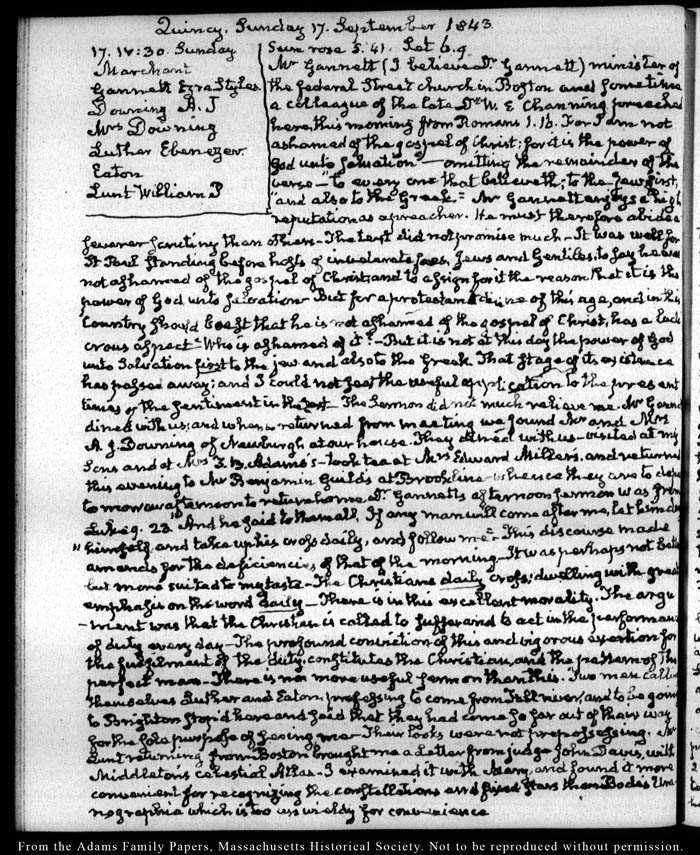 Quincy, Sunday 17. September 1843.
17. IV:30. Sunday
Marchant
Gannett Ezra Styles
Downing A. J
Mrs Downing
Luther Ebenezer.
Eaton
Lunt William P
Sun rose 5.41. Set 6.9.
Mr Gannett (I believe Dr Gannett) minister of
the federal Street church in Boston and sometime
a colleague of the late Dr W. E Channing preached
here, this morning from Romans 1.16. For I am not
ashamed of the gospel of Christ; for it is the power of
God unto Salvation"—omitting the remainder of the
verse—"to every one that believeth, to the Jew first,
"and also to the Greek." Mr Gannett enjoys a high
reputation as a preacher. He must therefore abide a
severer scrutiny than others—The text did not promise much—It was well for
St Paul standing before hosts of inveterate foes, Jews and Gentiles, to say he was
not ashamed of the gospel of Christ, and to assign for it the reason that it is the
power of God unto salvation But for a protestant divine of this age, and in this
Country should boast that he is not ashamed of the gospel of Christ, has a ludi
crous aspect—Who is ashamed of it?—But it is not at this day the power of God
unto Salvation first to the jew and also to the Greek. That stage of its existence
has passed away; and I could not see the useful application to the present
times of the sentiment in the text—The Sermon did not much relieve me. Mr Gann
dined with us; and when we returned from meeting we found Mr and Mrs
A. J. Downing of Newburgh at our house. They dined with us—visited at my
Sons and at Mrs T. B. Adams's—took tea at Mrs Edward Miller's, and returned
this evening to Mr Benjamin Guild's at Brookline whence they are to depa
to morrow afternoon to return home Dr Gannett's afternoon sermon was from
Luke 9. 23. "And he said to them all, If any man will come after me, let him de
"himself, and take up his cross daily, and follow me"—This discourse made
amends for the deficiencies of that of the morning—It was perhaps not bette
but more suited to my taste—The Christian's daily cross; dwelling with great
emphasis on the word daily—There is in this excellent morality. The argu
-ment was that the Christian is called to suffer and to act in the performan
of duty every day—The profound conviction of this and vigorous exertion for
the fulfilment of the duty, constitutes the Christian, and the pattern of the
perfect man—There is no more useful sermon than this. Two men calling
themselves Luther and Eaton, professing to come from Fall river, and to be going
to Brighton stop'd here and said that they had come so far out of their way
for the sole purpose of seeing me—Their looks were not prepossessing. Mr
Lunt returning from Boston brought me a Letter from judge John Davis, with
Middleton's celestial Atlas—I examined it with Mary, and found it more
convenient for recognizing the constellations and fixed stars than Bode's Ura
nographia which is too unwieldy for convenience
From the Adams Family Papers, Massachusetts Historical Society. Not to be reproduced without permission.